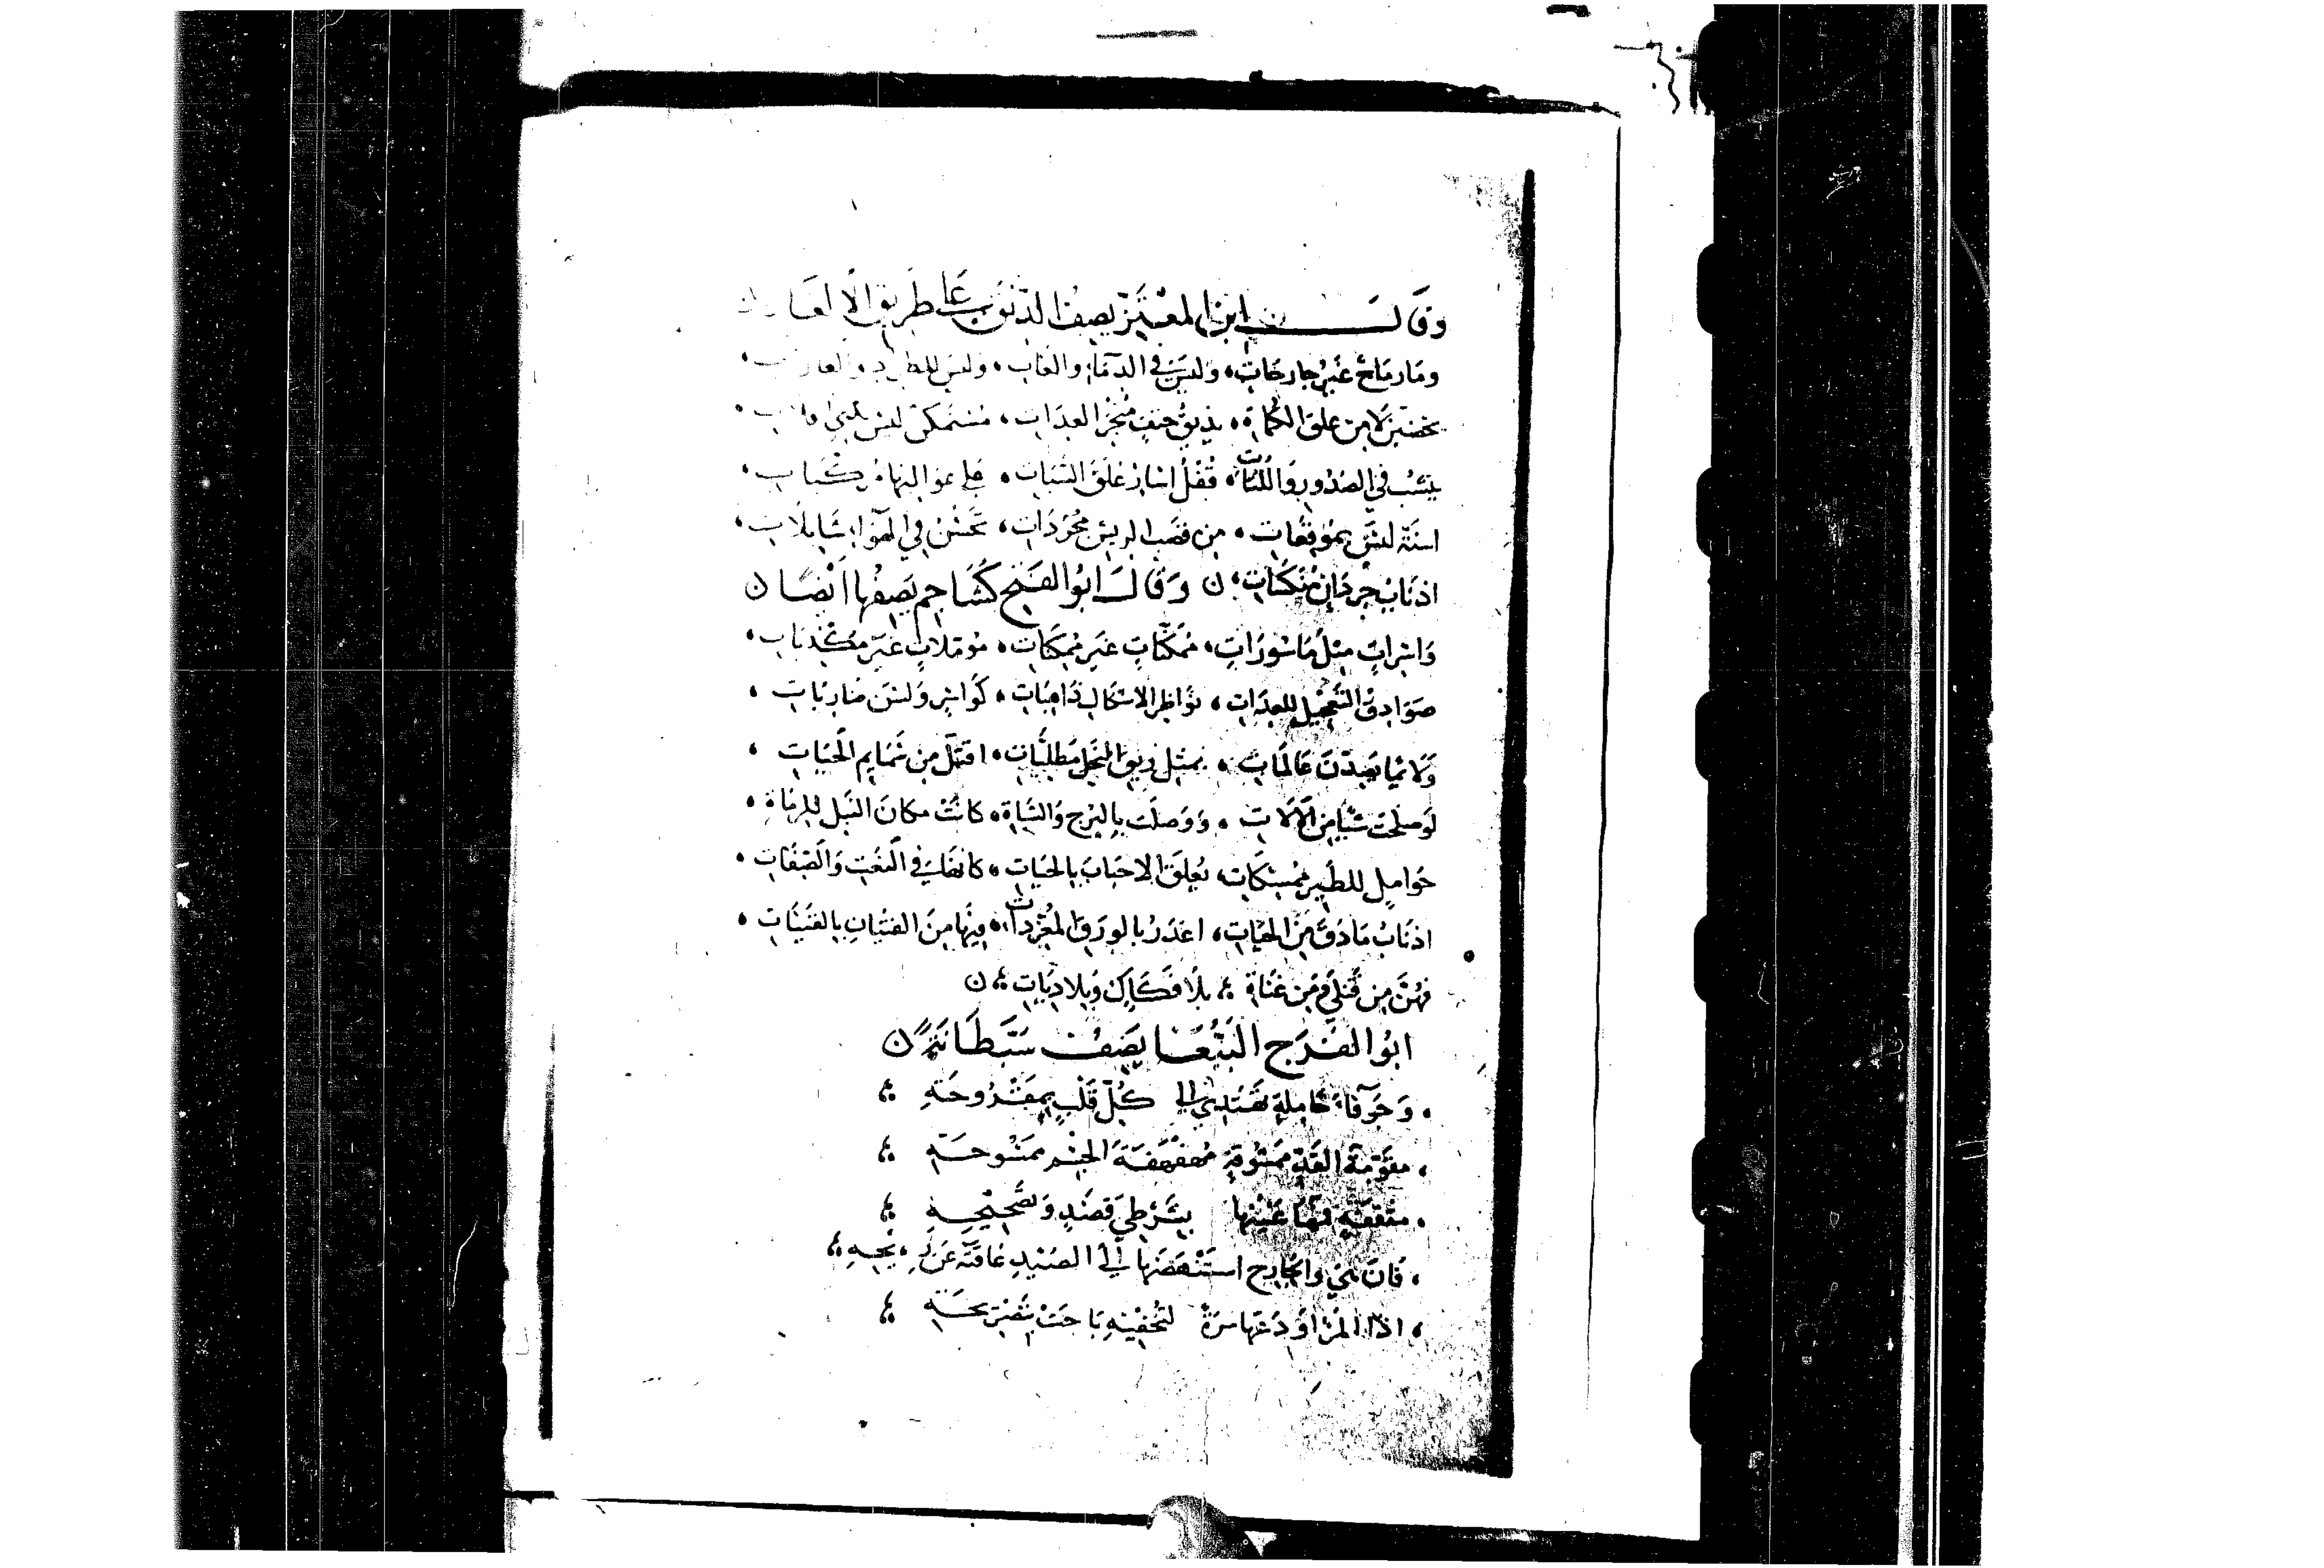 وقال ابن المعتز يصف الدبق على طريق الالغاز
وما رماح غير جارحات، وليس في الدماء والغاب، وليس للطراد والغارات
يخضبن لا من علق الكماة، بذيق حتف منجز العدات، مستمكن ليس بذي
ينشب في الصدور واللبات، فعل اسار علق الشباة، على عواليها
اسنة ليس بموقعات، من قصب الريش مجردات، تحسن في الهواء شايلات
اذناب جرذان منكسات، وقال ابو الفتح كشاجم يصفها ايضا
واسرات مثل ماسورات، ممكنات غير ممكنات، مؤملات غير مكذبات
صوادق التعجيل للعدات، نواظر الاشكال ذاهبات، كواسر وليس ضاريات
ولا بما يصدن عالمات، بمثل ريق النحل مطليات، اقتل من سمايم الحيات
لو صلحت شيا من الالات، ووصلت بالزج والشباة، كانت مكان النبل للرماة
حوامل للطير ممسكات، تعلق الاحباب بالحيات، كانها في النعت والصفات
اذناب ما دق من الحيات، اغدر بالورق المغردات، فيها من الفتيان بالفتيات
فهن من قتلى ومن عناة، بلا فكاك وبلا ديات
ابو الفرج الببغا يصف سبطانة
وجوفاء حاملة تهتدي الى كل قلب بمقروحه
مقومة القد ممشوقة مهفهفة الجسم ممسوحه
مثقفة فمها عينها بشرطي قصد وتصحيحه
فان هي والجارح استنهضها الى الصيد عاقته عن
اذا المرء اودعها سره لتخفيه باحت بتصريحه